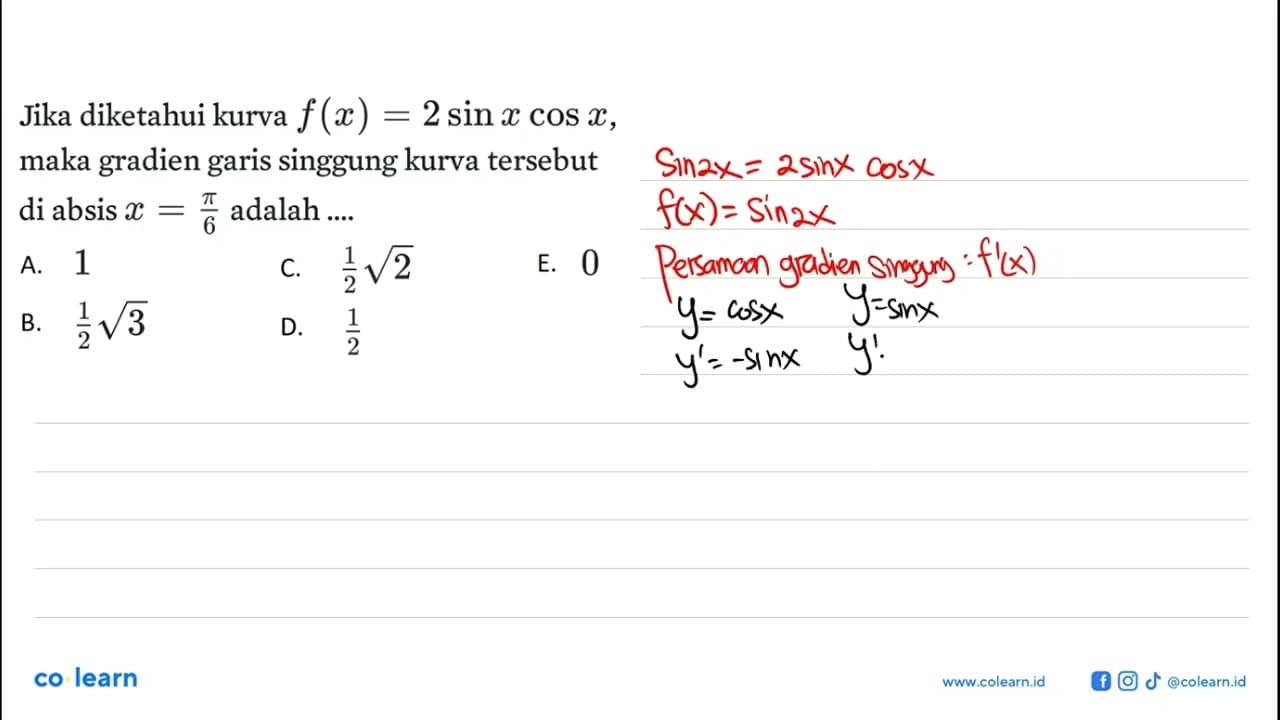 Jika diketahui kurva f(x) = 2 sin x cos x,
maka gradien garis singgung kurva tersebut
di absis x = π/6 adalah ....
A. 1
C. 1/2 √2
E. 0
B. 1/2 √3
D. 1/2
Sin2x = 2sinx cosx
f(x) = Sin2x
Persamaan gradien singgung = f'(x)
y = cosx y = sinx
y' = -sinx y'
co learn
www.colearn.id
@colearn.id